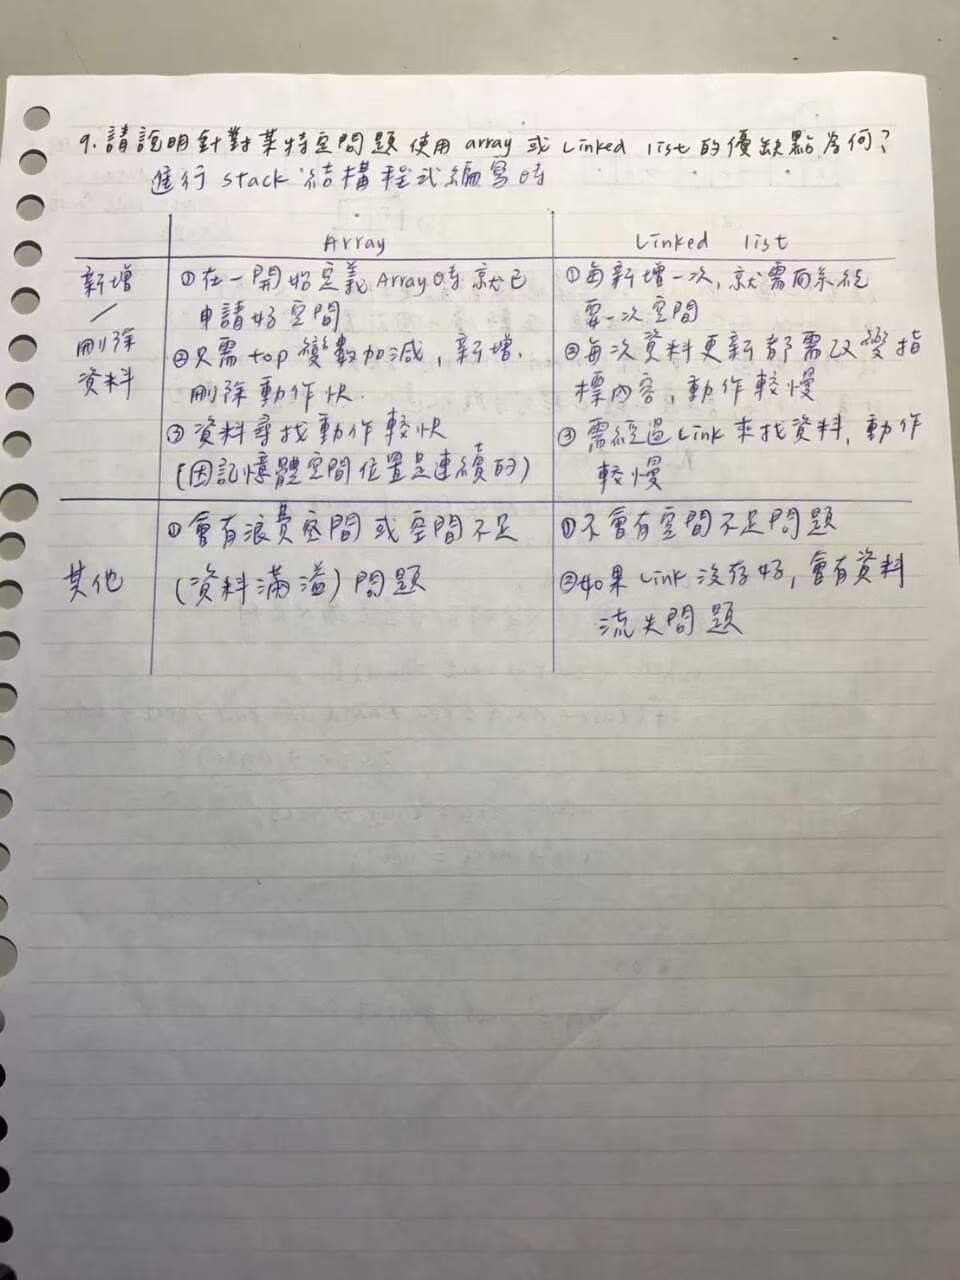 9.請說明針對某特定問題使用array或Linked list的優缺點為何?
進行stack結構程式編寫時
Array
Linked list
新增
/
刪除
資料
①在一開始定義Array時就已
申請好空間
②只需top變數加減,新增.
刪除動作快.
③資料尋找動作較快
(因記憶體空間位置是連續的)
①每新增一次,就需向系統
要一次空間
②每次資料更新都需改變指
標內容,動作較慢
③需經過Link來找資料,動作
較慢
其他
①會有浪費空間或空間不足
(資料滿溢)問題
①不會有空間不足問題
②如果Link沒存好,會有資料
流失問題